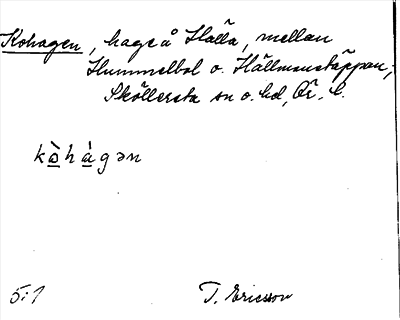 Kohagen, hage å Hälla, mellan
Hummelbol o. Hällmanstäppan,
Sköllersta sn o. hd, Ör. l.
kòhágən
5:1 T. Ericsson